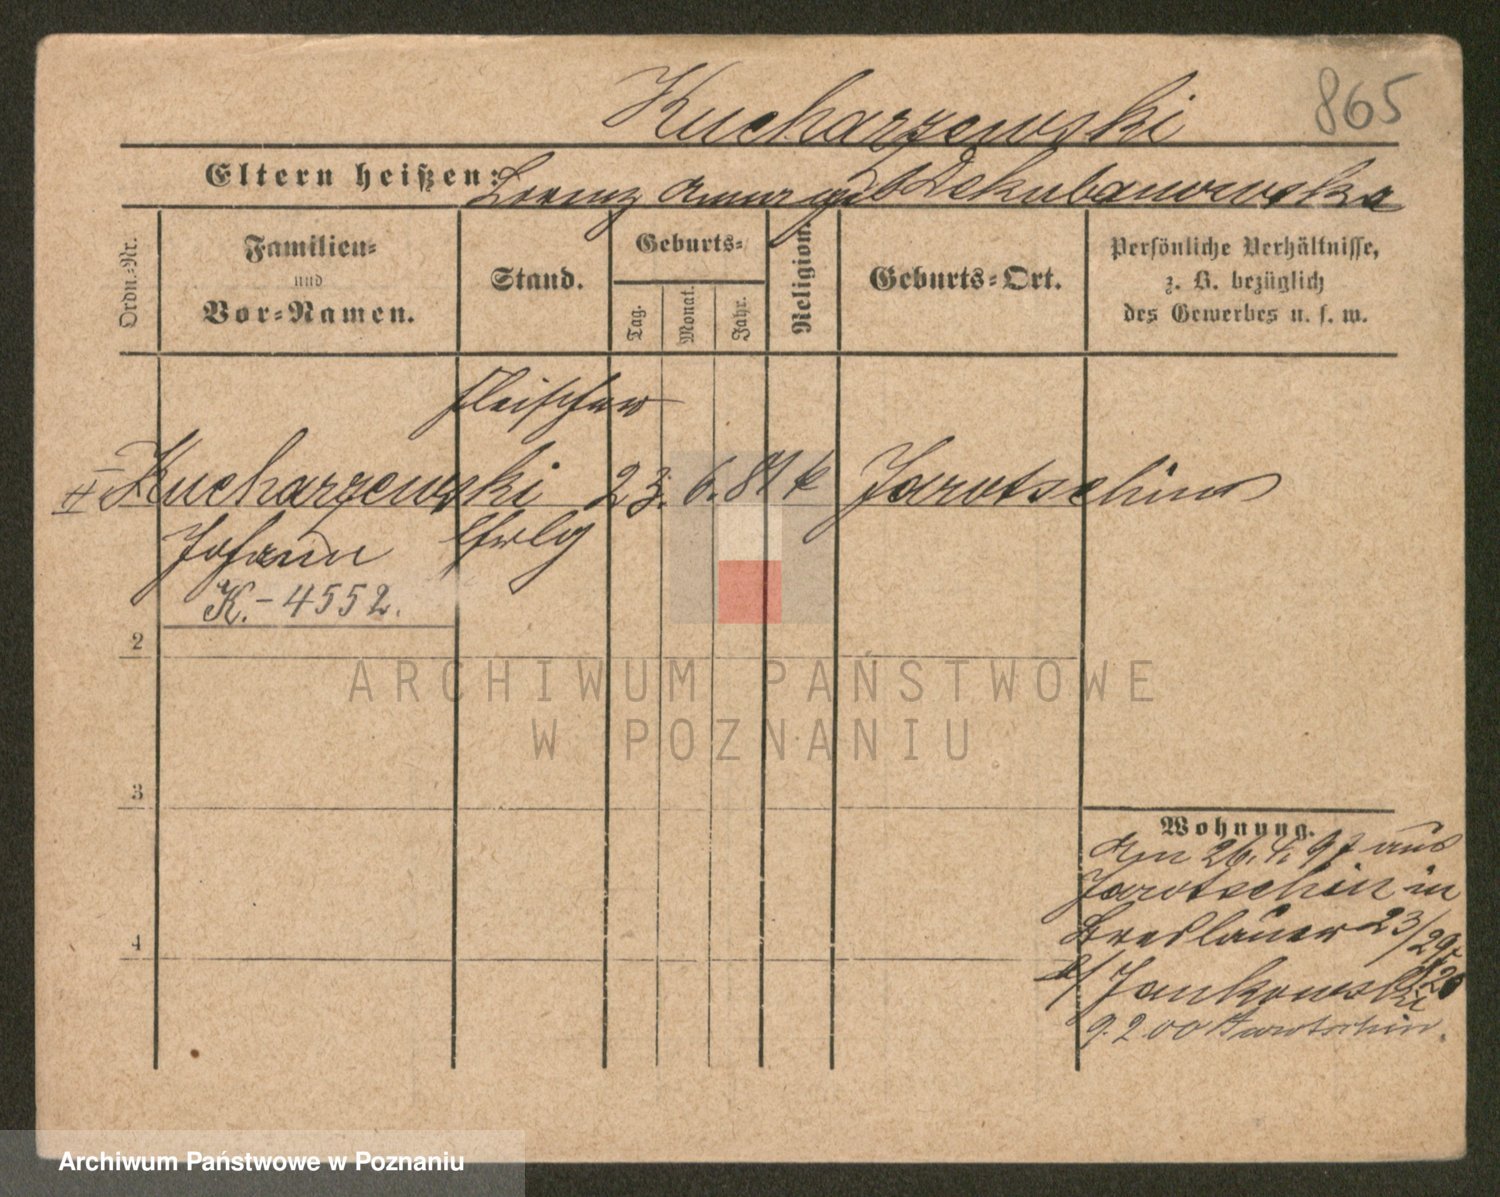 865
Kucharzewski
Eltern heißen: Lorenz Anna geb Dekubanowska
Ordn.-Nr.
Familien-
und
Vor-Namen.
Stand.
Geburts-
Tag.
Monat.
Jahr.
Religion.
Geburts-Ort.
Persönliche Verhältnisse,
z. B. bezüglich
des Gewerbes u. s. w.
Fleischer
Kucharzewski 23. 6. 81 k Jarotschin
Johann
K.-4552.
2
3
4
Wohnung.
Am 26. 4. 97 aus
Jarotschin in
Breslauer 23/29
b/ Jankowski
9. 2 00 Jarotschin.
ARCHIWUM PAŃSTWOWE
W POZNANIU
Archiwum Państwowe w Poznaniu